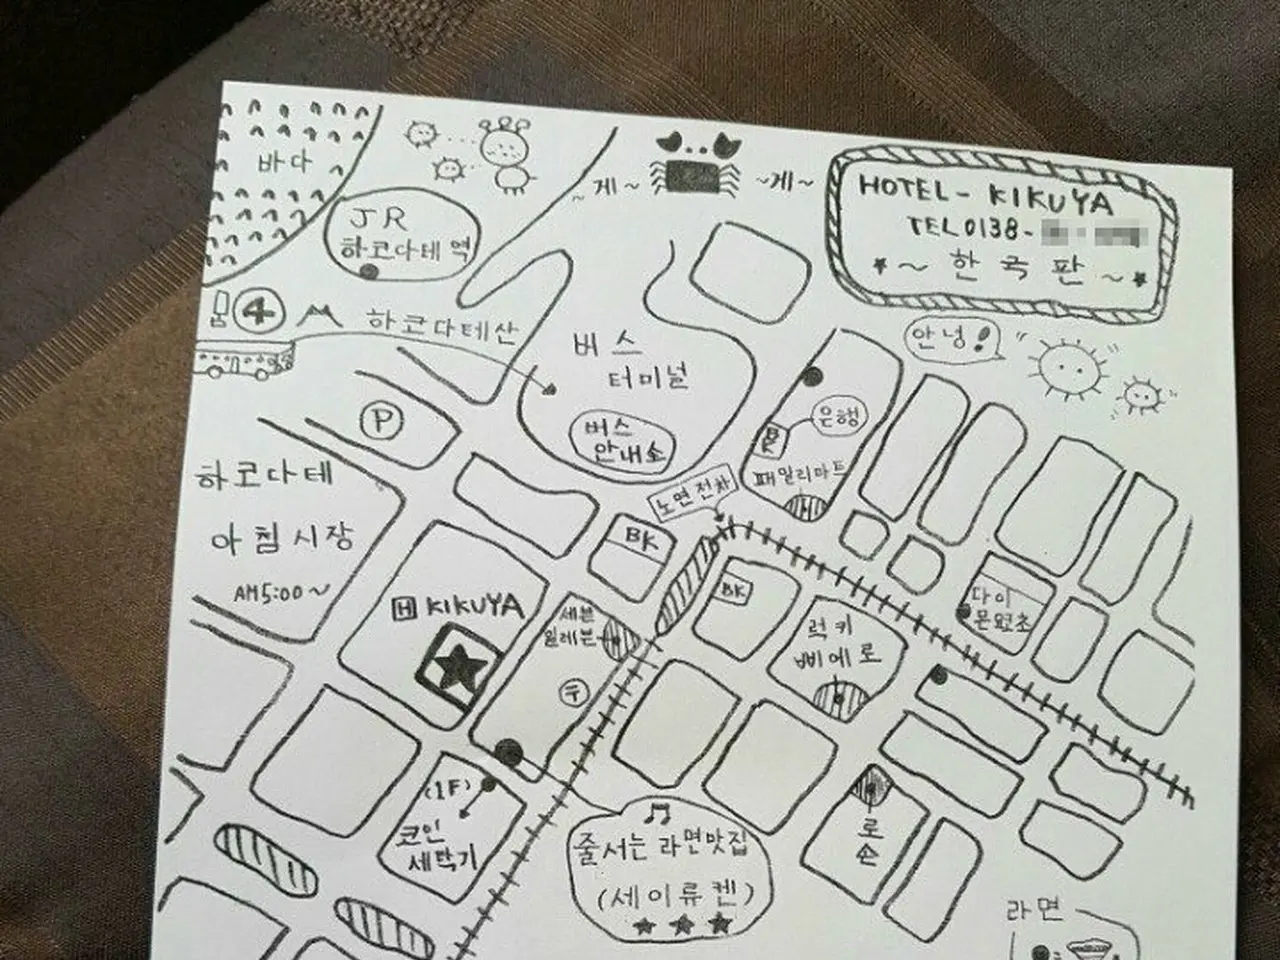 바다
JR
하코다테 역
~게~
~게~
HOTEL - KIKUYA
TEL 0138-
~ 한국판 ~
4
하코다테산
버스
터미널
버스
안내소
안녕!
은행
BK
패밀리마트
P
하코다테
아침시장
AM5:00~
노면전차
BK
BK
H KIKUYA
세븐
일레븐
〒
럭키
삐에로
다이
몬요쵸
(1F)
코인
세탁기
줄서는 라면맛집
(세이류켄)
로손
라면